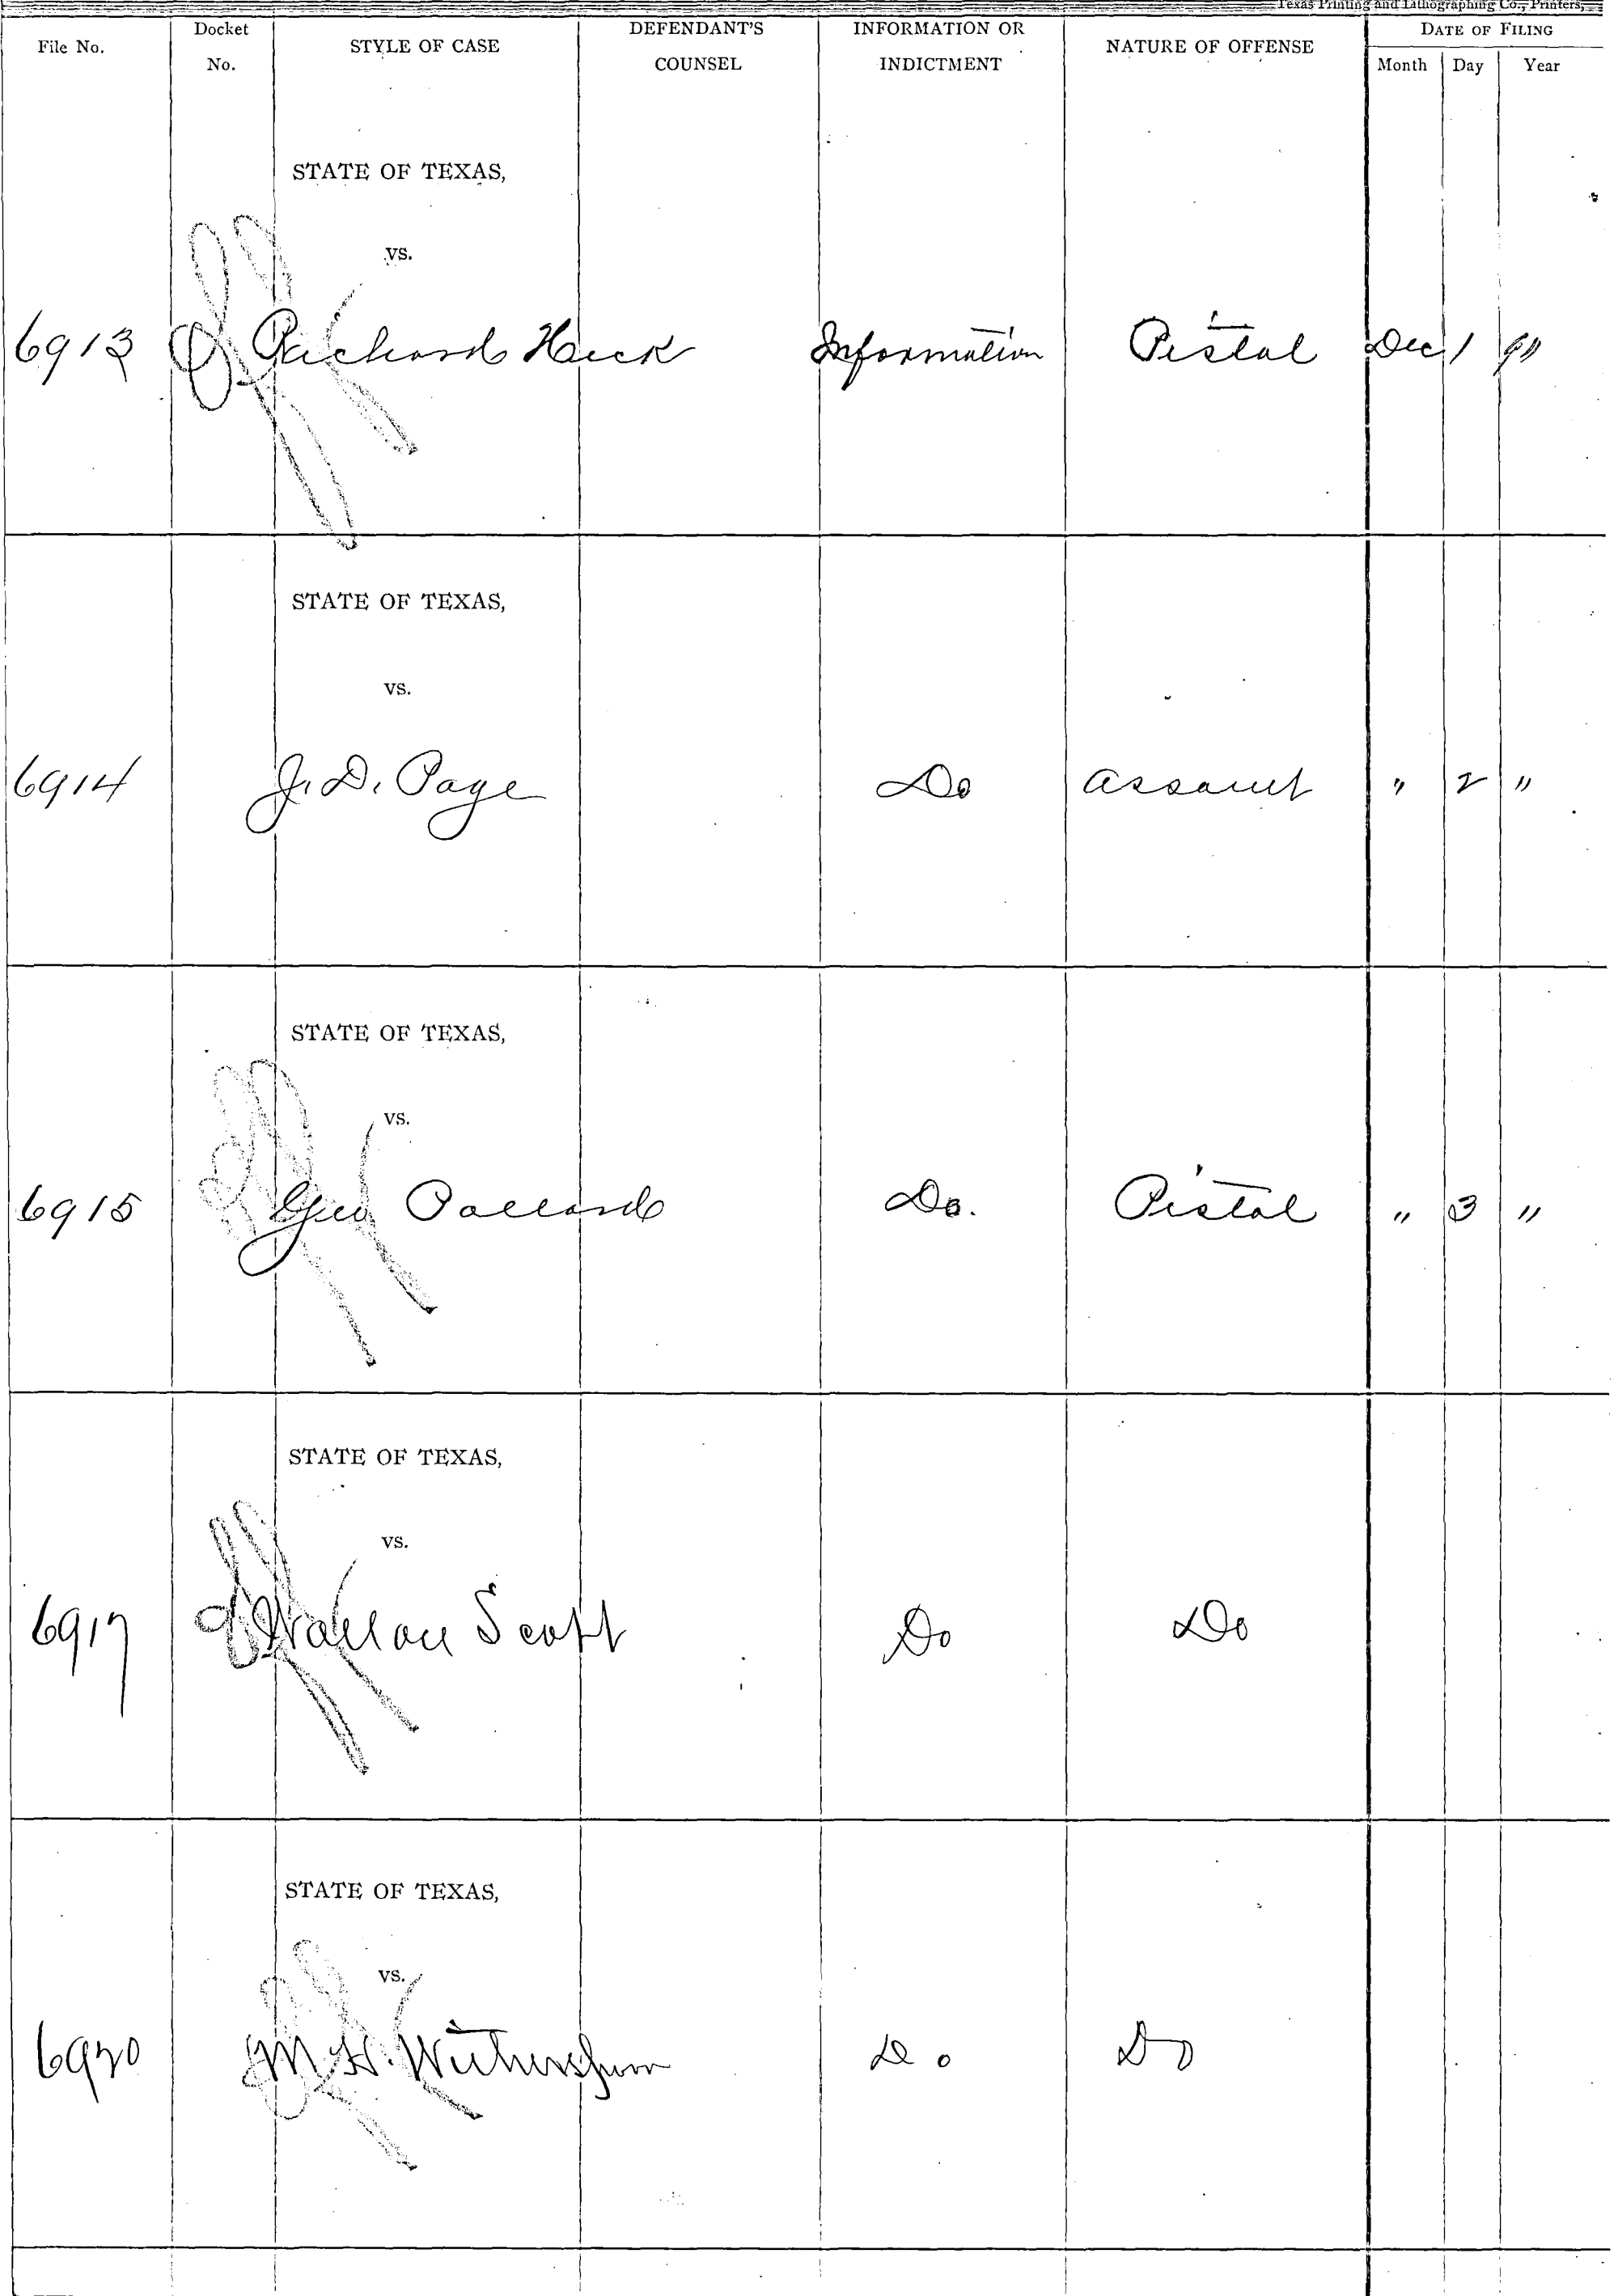 Texas Printing and Lithographing Co., Printers,
File No. Docket No. STYLE OF CASE DEFENDANT'S COUNSEL INFORMATION OR INDICTMENT NATURE OF OFFENSE DATE OF FILING
Month Day Year
STATE OF TEXAS,
VS.
6913 Richard Heck Information Pistol Dec 1
STATE OF TEXAS,
VS.
6914 J. D. Page Do Assault " 2 "
STATE OF TEXAS,
VS.
6915 Geo Pollard Do. Pistol " 3 "
STATE OF TEXAS,
VS.
6917 Scott Do Do
STATE OF TEXAS,
VS.
6920 Do Do